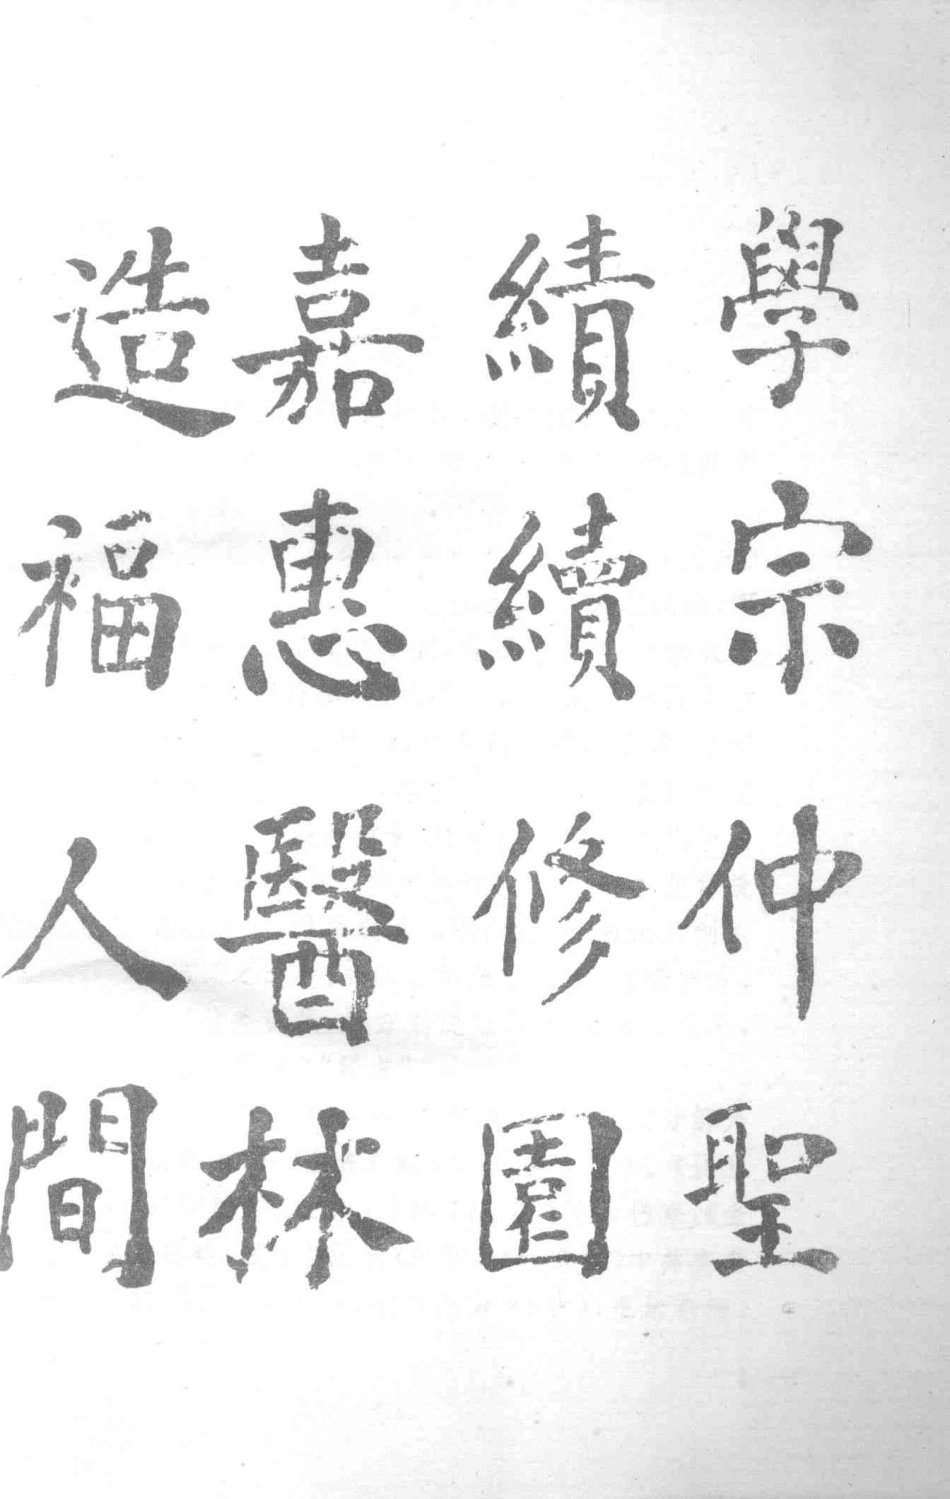 學宗仲聖
績續修園
嘉惠醫林
造福人間